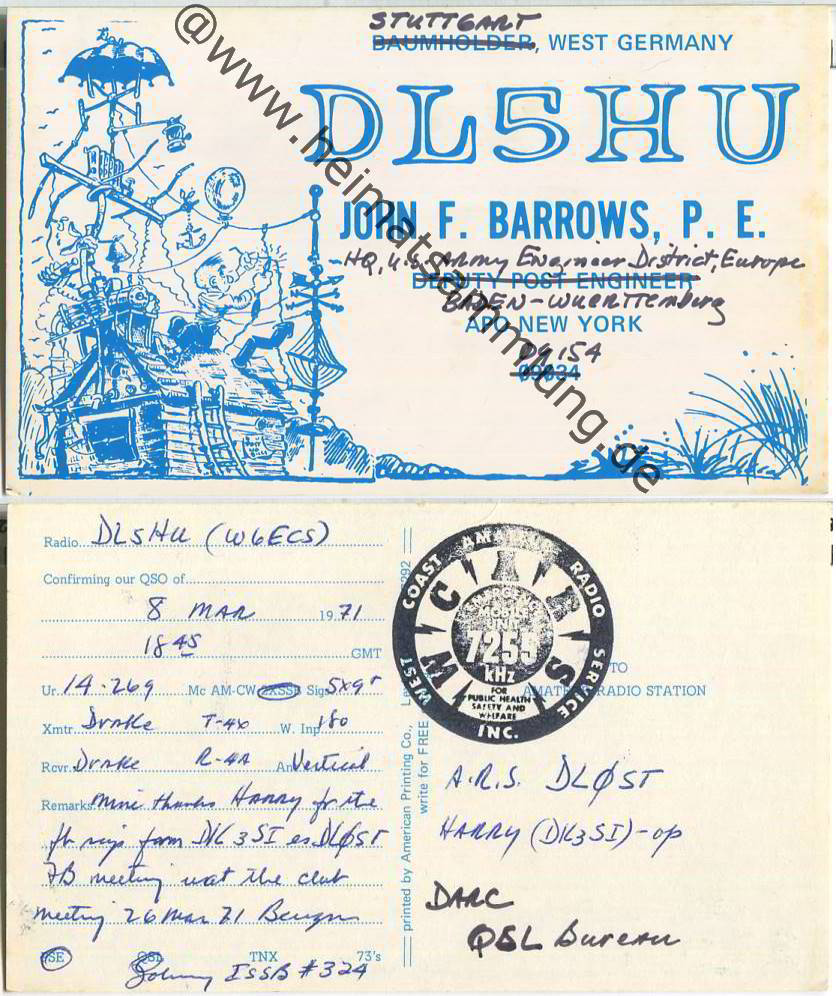 STUTTGART
BAUMHOLDER, WEST GERMANY
DL5HU
JOHN F. BARROWS, P. E.
HQ, U.S. Army Engineer District, Europe
DEPUTY POST ENGINEER
BADEN-WUERTTEMBERG
APO NEW YORK
09154
@www.heimatsammlung.de
Radio DL5HU (W6ECS)
Confirming our QSO of
8 MAR 1971
1845 GMT
Ur. 14.269 Mc AM-CW-2XSSB Sigs 5x9
Xmtr. Drake T-4X W. Inp 180
Rcvr. Drake R-4A An Vertical
Remarks Mni thanks HARRY for the
fb sigs from DK3SI es DLØST
FB meeting u at the club
meeting 26 Mar 71
PSE QSL TNX 73's
Johnny ISSB #324
printed by American Printing Co.,
write for FREE
WEST COAST AMATEUR RADIO SERVICE INC.
WCARS
EMERGENCY
MOBILE
UNIT
7255
kHz
FOR
PUBLIC HEALTH
SAFETY AND
WELFARE
TO
AMATEUR RADIO STATION
A.R.S. DLØST
HARRY (DK3SI)-op
DARC
QSL Bureau